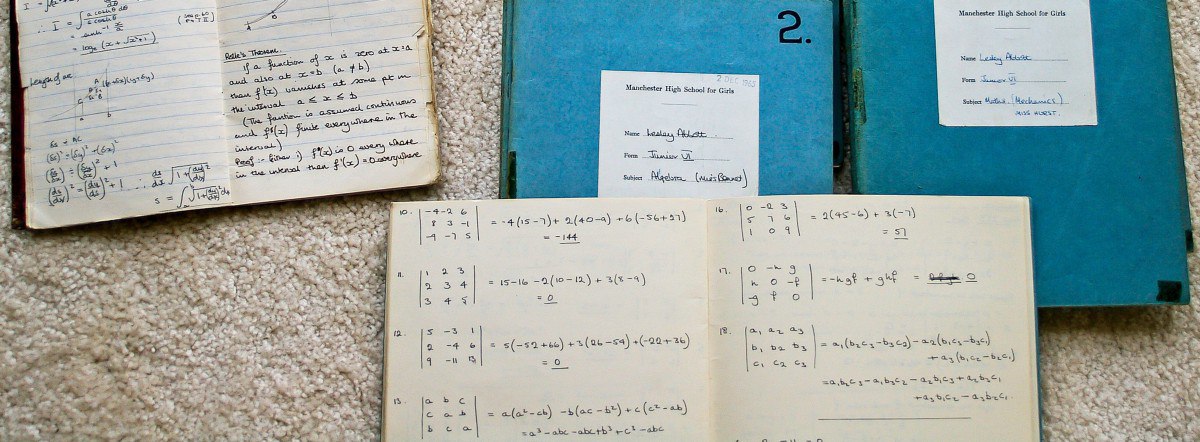 ∴ I = ∫ a cosh θ dθ / a cosh θ
= sinh⁻¹ x/a
= logₑ (x + √x²+1)
Length of arc
δs ≐ AC
(δs)² = (δy)² + (δx)²
(δs/δx)² = (δy/δx)² + 1
(ds/dx)² = (dy/dx)² + 1
ds/dx = √1+(dy/dx)²
s = ∫ √1+(dy/dx)² dx
Rolle's Theorem.
If a function of x is zero at x=a
and also at x=b (a ≠ b)
then f'(x) vanishes at some pt in
the interval a ≤ x ≤ b
(The function is assumed continuous
and f'(x) finite everywhere in the
interval)
Proof :- Either i) f'(x) is 0 every where
in the interval then f'(x) = 0 everywhere
2.
2 DEC 1965
Manchester High School for Girls
Name Lesley Abbott
Form Junior VI
Subject Algebra (Miss Bonnet)
Manchester High School for Girls
Name Lesley Abbott
Form Junior VI
Subject Maths (Mechanics)
MISS HURST.
10. | -4 -2 6 |
| 8 3 -1 | = -4(15-7) + 2(40-9) + 6(-56+27)
| -9 -7 5 | = -144
11. | 1 2 3 |
| 2 3 4 | = 15-16 -2(10-12) + 3(8-9)
| 3 4 5 | = 0
12. | 5 -3 1 |
| 2 -4 6 | = 5(-52+66) + 3(26-54) + (-22+36)
| 9 -11 13 | = 0
13. | a b c |
| c a b | = a(a²-cb) -b(ac-b²) + c(c²-ab)
| b c a | = a³-abc-abc+b³+c³-abc
16. | 0 -2 3 |
| 5 7 6 | = 2(45-6) + 3(-7)
| 1 0 9 | = 57
17. | 0 -h g |
| h 0 -f | = -hgf + ghf = 0
| -g f 0 |
18. | a₁ a₂ a₃ |
| b₁ b₂ b₃ | = a₁(b₂c₃-b₃c₂) - a₂(b₁c₃-b₃c₁)
| c₁ c₂ c₃ | + a₃(b₁c₂-b₂c₁)
= a₁b₂c₃-a₁b₃c₂-a₂b₁c₃+a₂b₃c₁
+a₃b₁c₂-a₃b₂c₁.